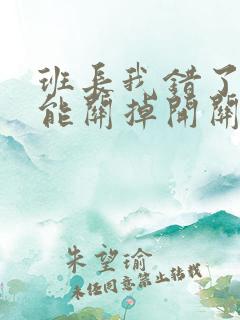 班长我错了
能关掉开关
朱望瑜
未经同意禁止转载